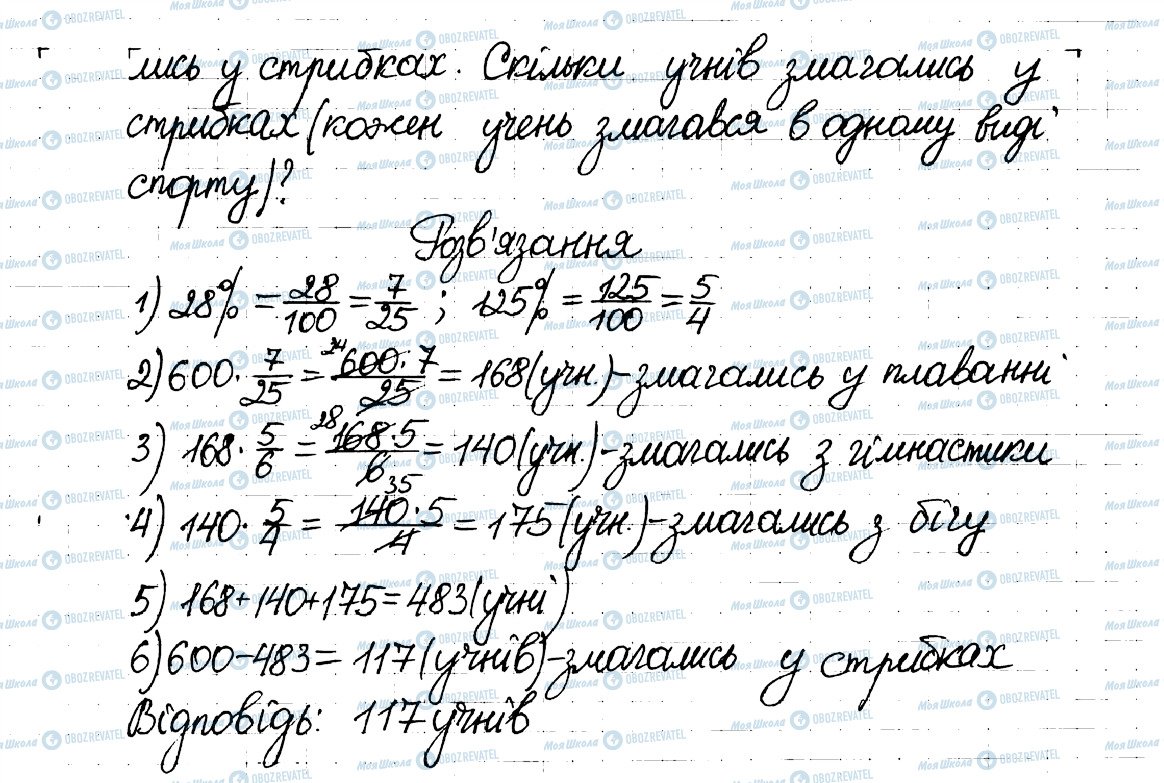 лись у стрибках. Скільки учнів змагались у
стрибках (кожен учень змагався в одному виді
спорту)?
Розв'язання
1) 28% = 28/100 = 7/25 ; 125% = 125/100 = 5/4
2) 600 · 7/25 = 24 600 · 7/25 = 168 (учн.) - змагались у плаванні
3) 168 · 5/6 = 28 168 · 5/6 = 140 (учн.) - змагались з гімнастики
4) 140 · 5/4 = 35 140 · 5/4 = 175 (учн.) - змагались з бігу
5) 168 + 140 + 175 = 483 (учні)
6) 600 - 483 = 117 (учнів) - змагались у стрибках
Відповідь: 117 учнів